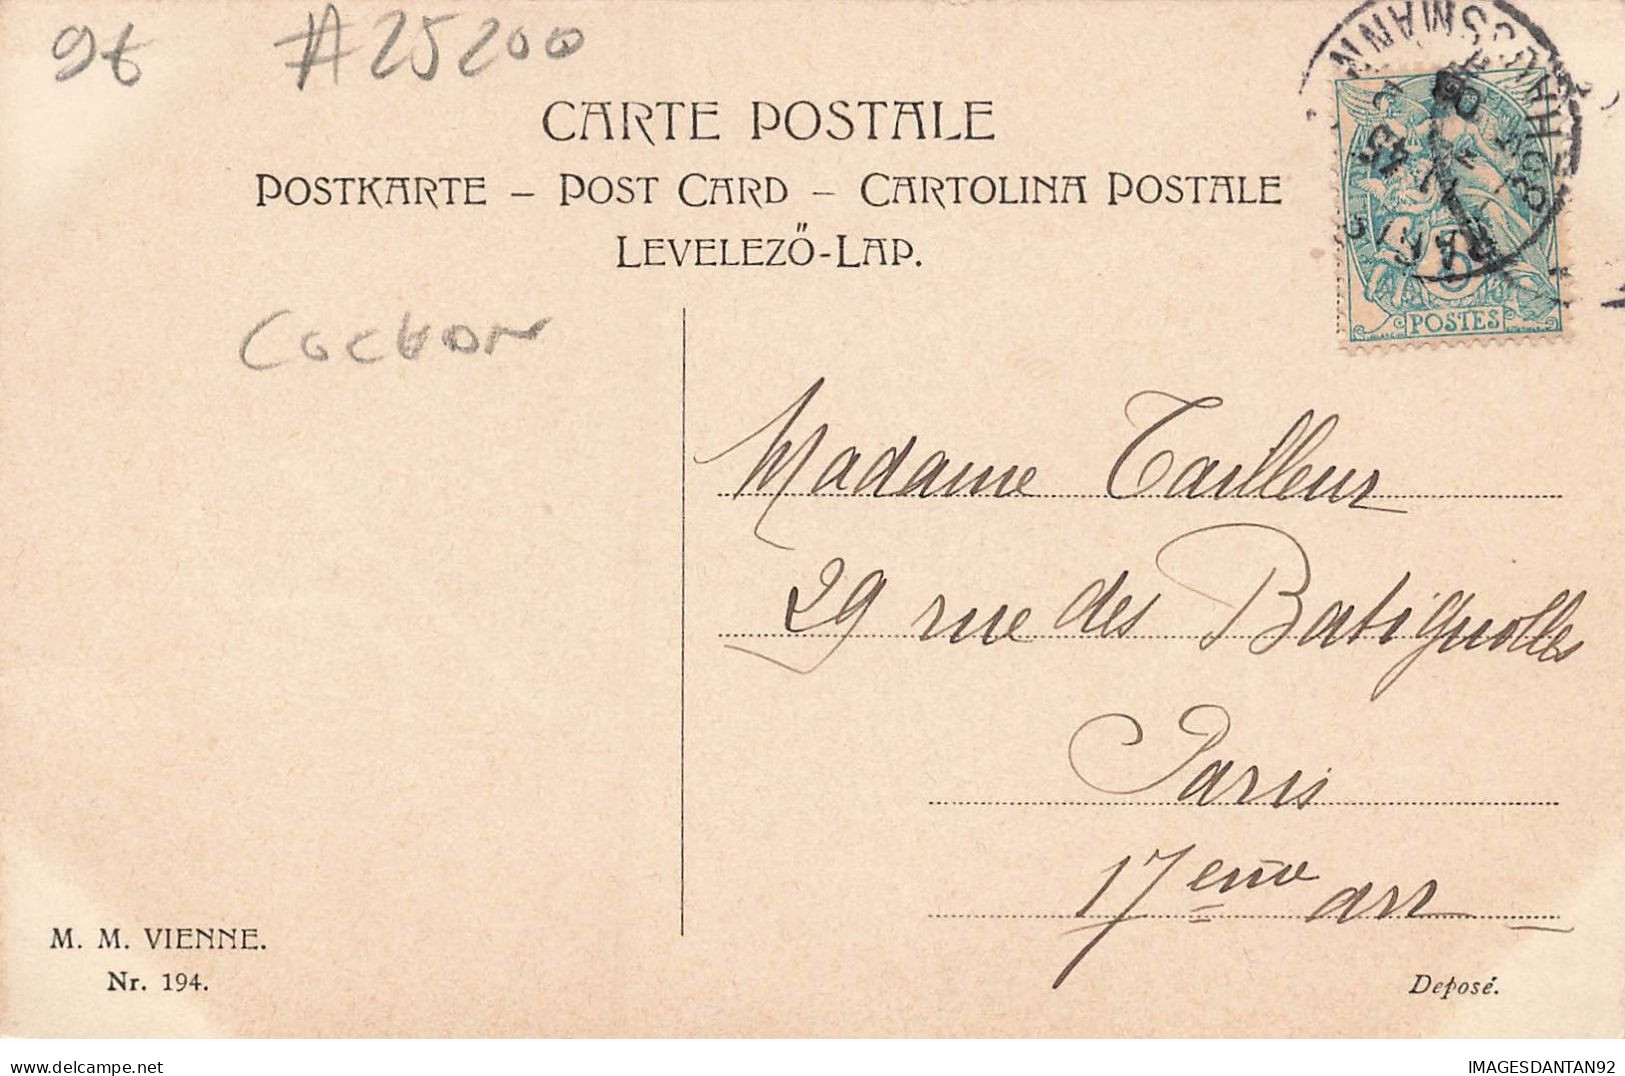 9€
#25200
CARTE POSTALE
POSTKARTE – POST CARD – CARTOLINA POSTALE
LEVELEZŐ-LAP.
COCHON
POSTES
Madame Tailleur
29 rue des Batignolles
Paris
17eme arr
M. M. VIENNE.
Nr. 194.
Deposé.
IMAGESDANTAN92